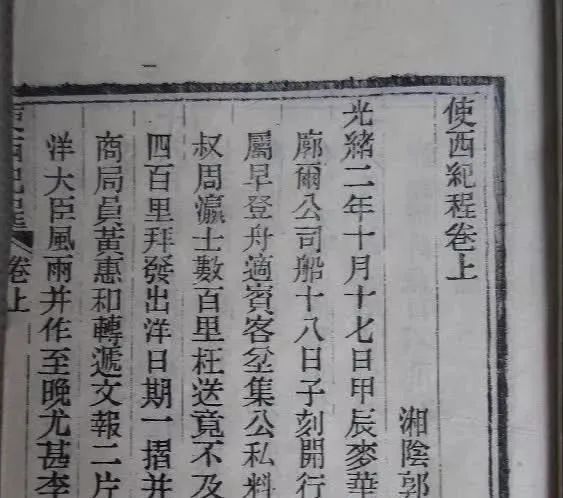 使西紀程卷上
湘陰郭
光緒二年十月十七日甲辰麥華
廓爾公司船十八日子刻開行
屬早登舟適賓客坌集公私料
叔周瀛士數百里枉送竟不及
四百里拜發出洋日期一摺并
商局員黃惠和轉遞文報二片
洋大臣風雨并作至晚尤甚李
使西紀程 卷上